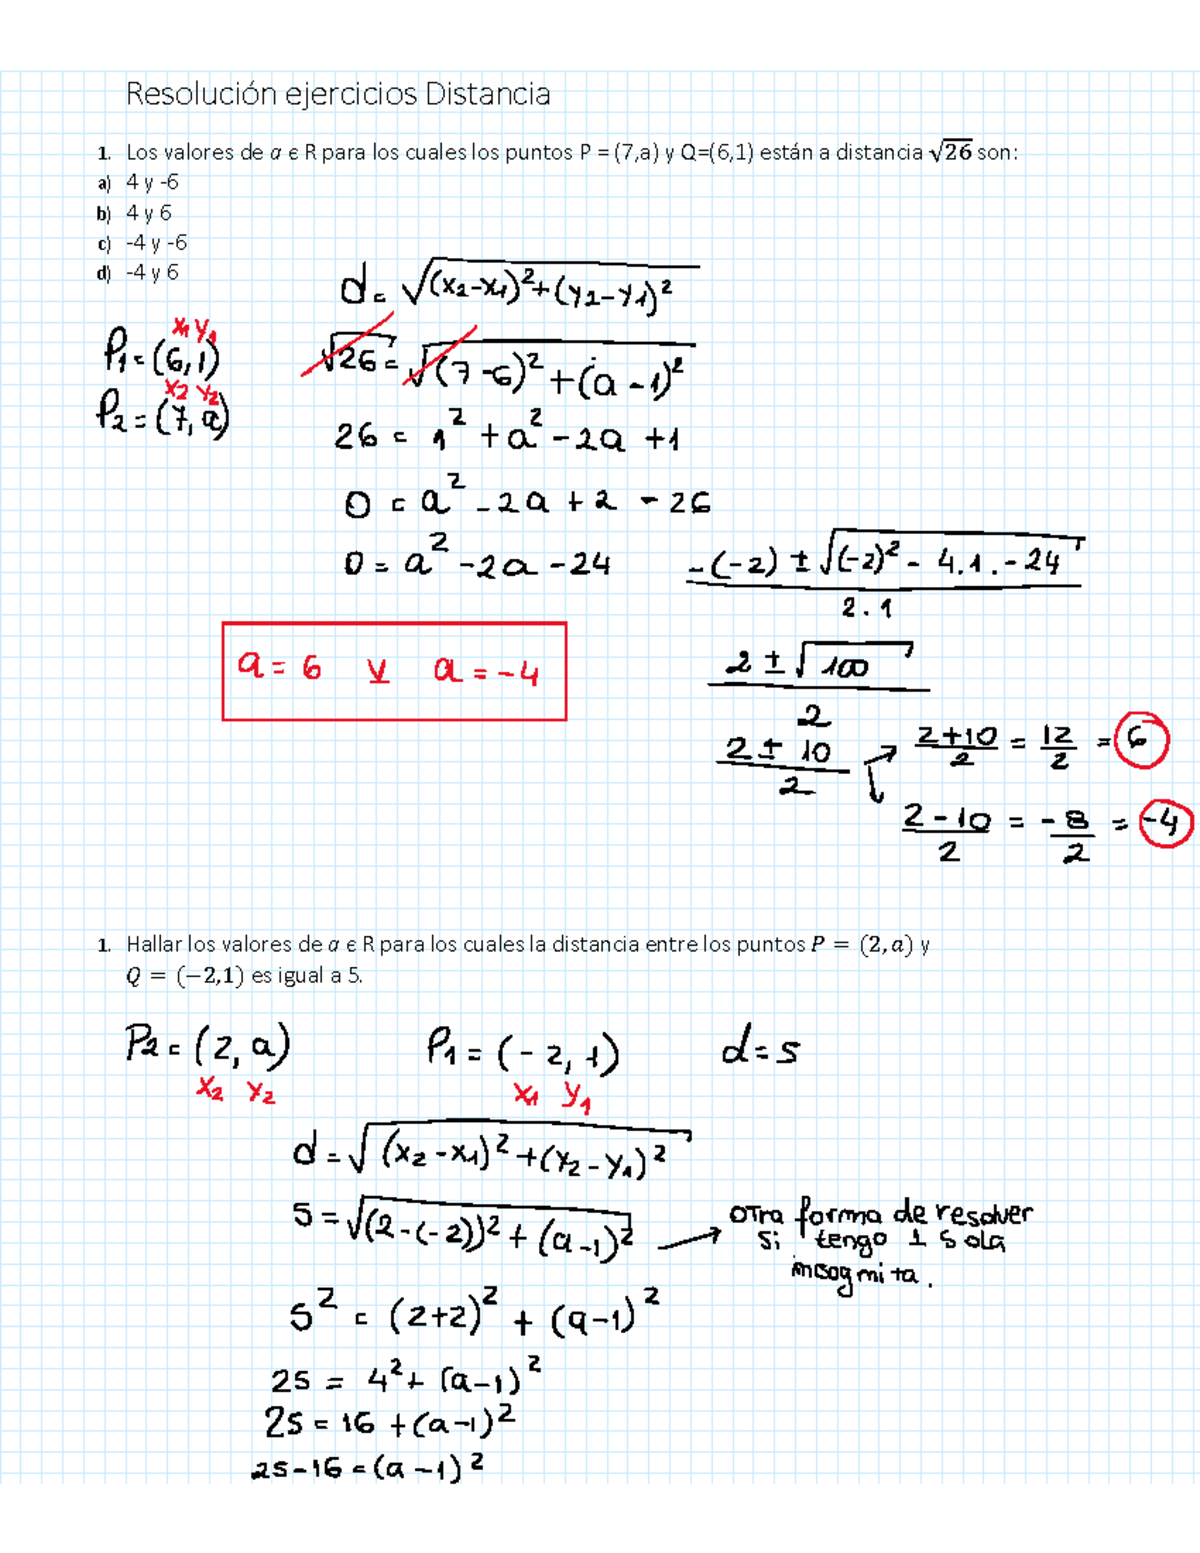 Resolución ejercicios Distancia
1. Los valores de a ϵ R para los cuales los puntos P = (7,a) y Q=(6,1) están a distancia √26 son:
a) 4 y -6
b) 4 y 6
c) -4 y -6
d) -4 y 6
d = √(x2-x1)²+(y2-y1)²
x1 y1
P1 = (6,1)
x2 y2
P2 = (7,a)
√26 = √(7-6)²+(a-1)²
26 = 1² + a² - 2a + 1
0 = a² - 2a + 2 - 26
0 = a² - 2a - 24
-(-2) ± √(-2)² - 4.1.-24
2.1
a = 6 v a = -4
2 ± √100
2
2 ± 10
2
2+10 = 12 = 6
2 2
2-10 = -8 = -4
2 2
1. Hallar los valores de a ϵ R para los cuales la distancia entre los puntos P = (2, a) y
Q = (−2,1) es igual a 5.
P2 = (2, a) P1 = (-2, 1) d = 5
x2 y2 x1 y1
d = √(x2-x1)²+(y2-y1)²
5 = √(2-(-2))²+(a-1)²
otra forma de resolver
si tengo 1 sola
incognita.
5² = (2+2)² + (a-1)²
25 = 4² + (a-1)²
25 = 16 + (a-1)²
25-16 = (a-1)²